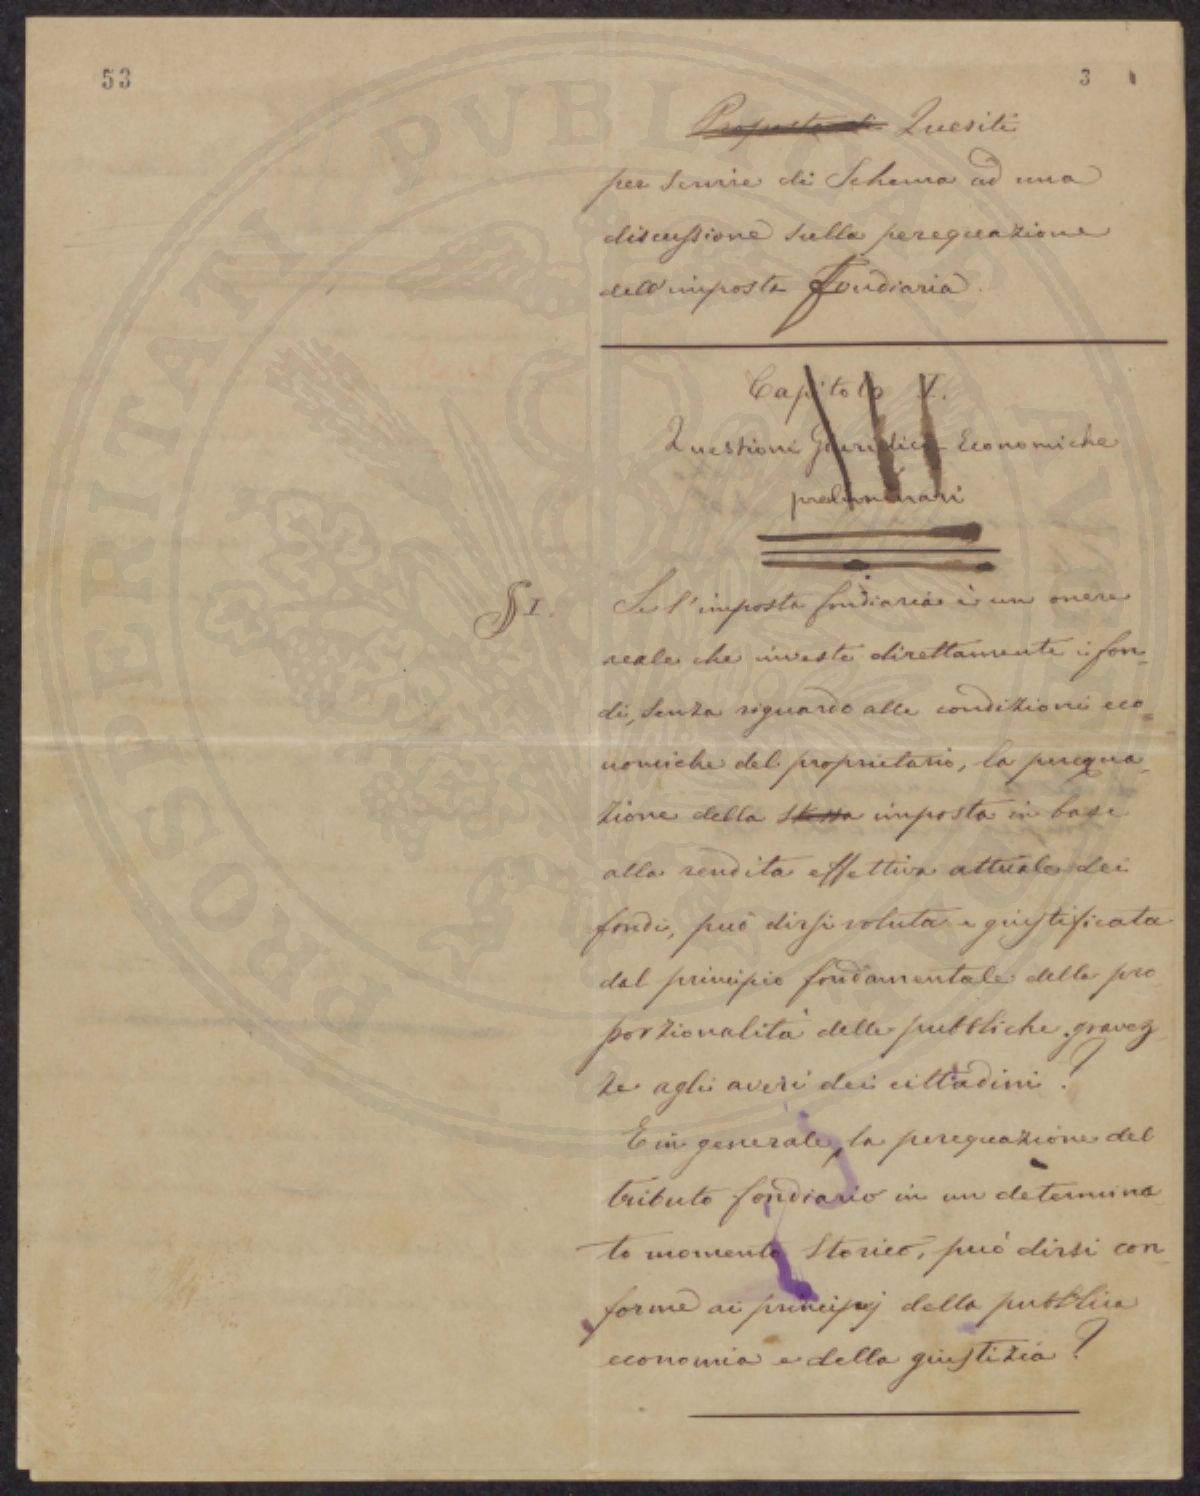 53
3
Proposta di Quesiti
per servire di Schema ad una
discussione sulla perequazione
dell'imposta Fondiaria.
Capitolo I.
Questioni Giuridico-Economiche
preliminari
§ I.
Se l'imposta fondiaria è un onere
reale che investe direttamente i fon-
di, senza riguardo alle condizioni eco-
nomiche del proprietario, la perequa-
zione della stessa imposta in base
alla rendita effettiva attuale dei
fondi, può dirsi voluta e giustificata
dal principio fondamentale della pro
porzionalità delle pubbliche gravez
ze agli averi dei cittadini?
E in generale, la perequazione del
tributo fondiario in un determina
to momento storico, può dirsi con-
forme ai principj della pubblica
economia e della giustizia?
PROSPERITATI PVBLICAE